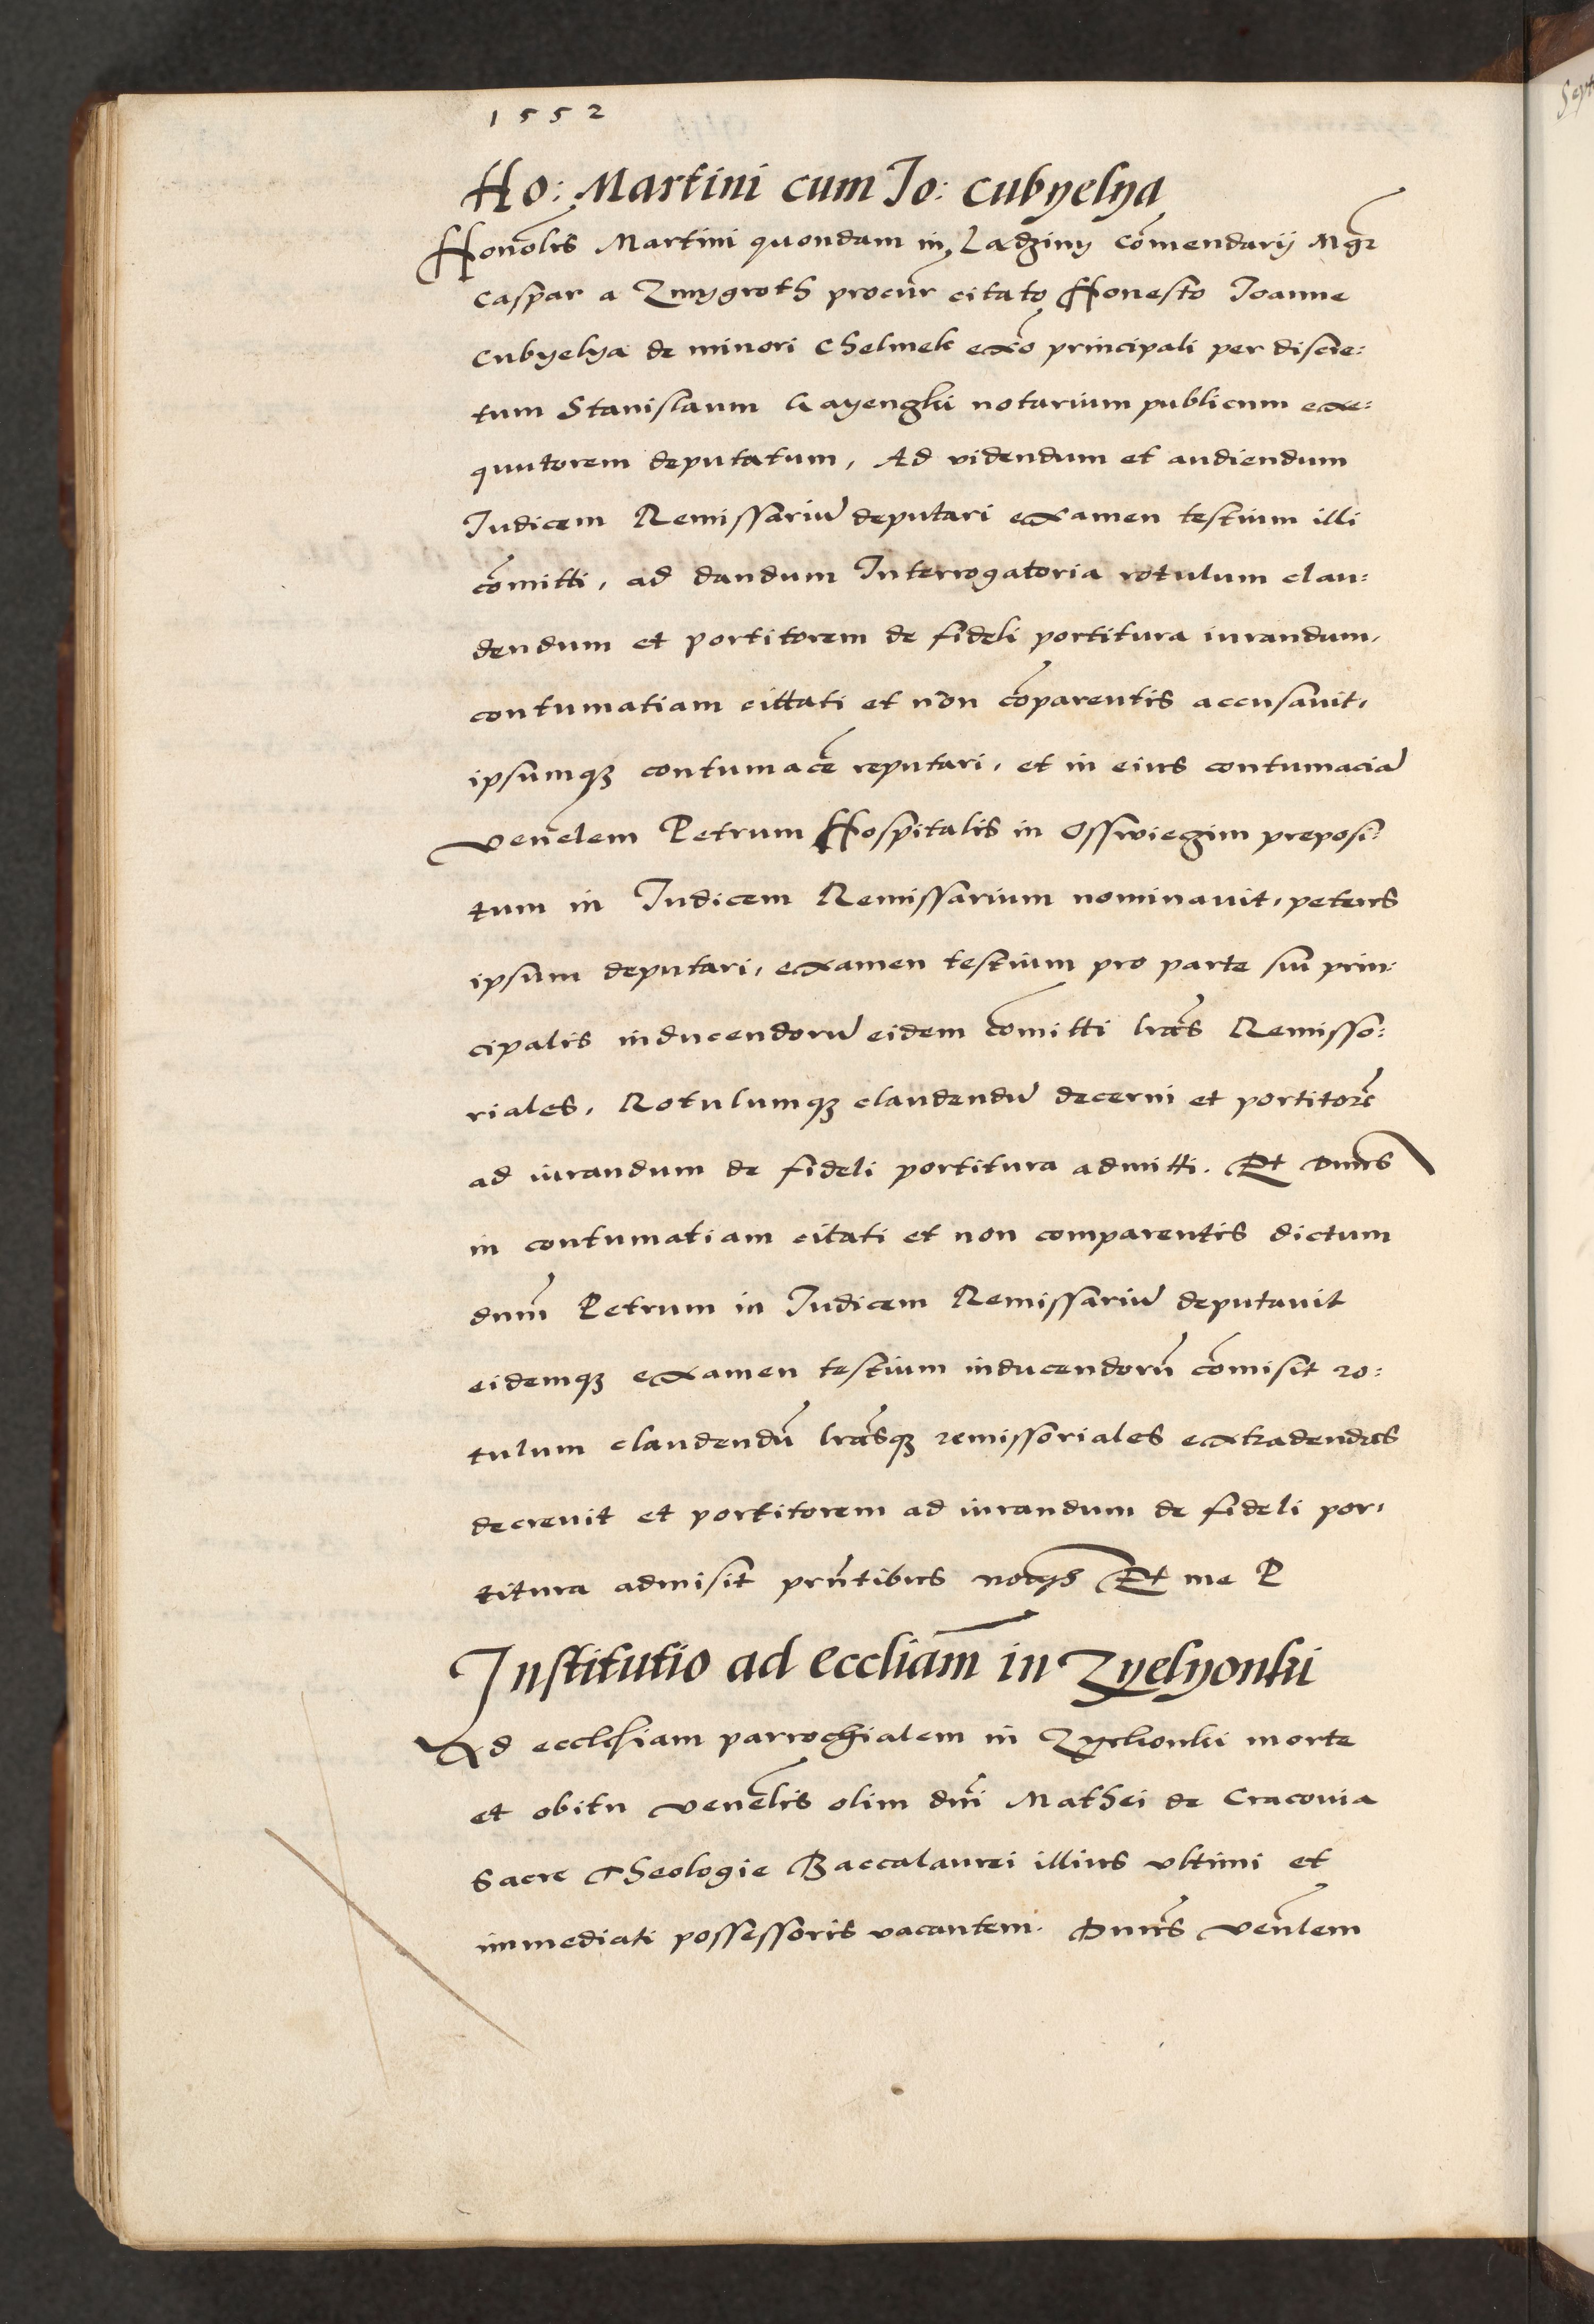 1552
Ho: Martini cum Jo: Cubyelya
Honōlis Martini quondam in Ladziny Cōmendarij Mgr̄
Caspar a Zmygroth procur̄ citato Honesto Joanne
Cubyelya de minori Chelmek ex̄o principali per discre:
tum Stanislaum Gayenghi notarium publicum exe:
quutorem deputatum, Ad videndum et audiendum
Judicem Remissariū deputari examen testium illi
cōmitti, ad dandum Interrogatoria rotulum clau:
dendum et portitorem de fideli portitura iurandum,
contumatiam cittati et non cōparentis accusauit,
ipsumqȝ contumacē reputari, et in eius contumaciā
Venēlem Petrum Hospitalis in Osswiegim preposi:
tum in Judicem Remissarium nominauit, petens
ipsum deputari, examen testium pro parte sui prin:
cipalis inducendorū eidem cōmitti lrās Remisso:
riales, Rotulumqȝ claudendū decerni et portitorē
ad iurandum de fideli portitura admitti. Et Dnūs
in contumatiam citati et non comparentis dictum
dnūm Petrum in Judicem Remissariū deputauit
eidemqȝ examen testium inducendorū cōmisit ro:
tulum claudendū lrāsqȝ remissoriales extradendas
decreuit et portitorem ad iurandum de fideli por,
titura admisit prn̄tibus Et me P
Institutio ad eccliam̄ in Zyelyonki
Ad ecclesiam parrochialem in Zyelionki morte
et obitu venēlis olim dnī Mathei de Cracouia
Sacre Theologie Baccalaurei illius vltimi et
immediati possessoris vacantem. Dnūs venl̄em